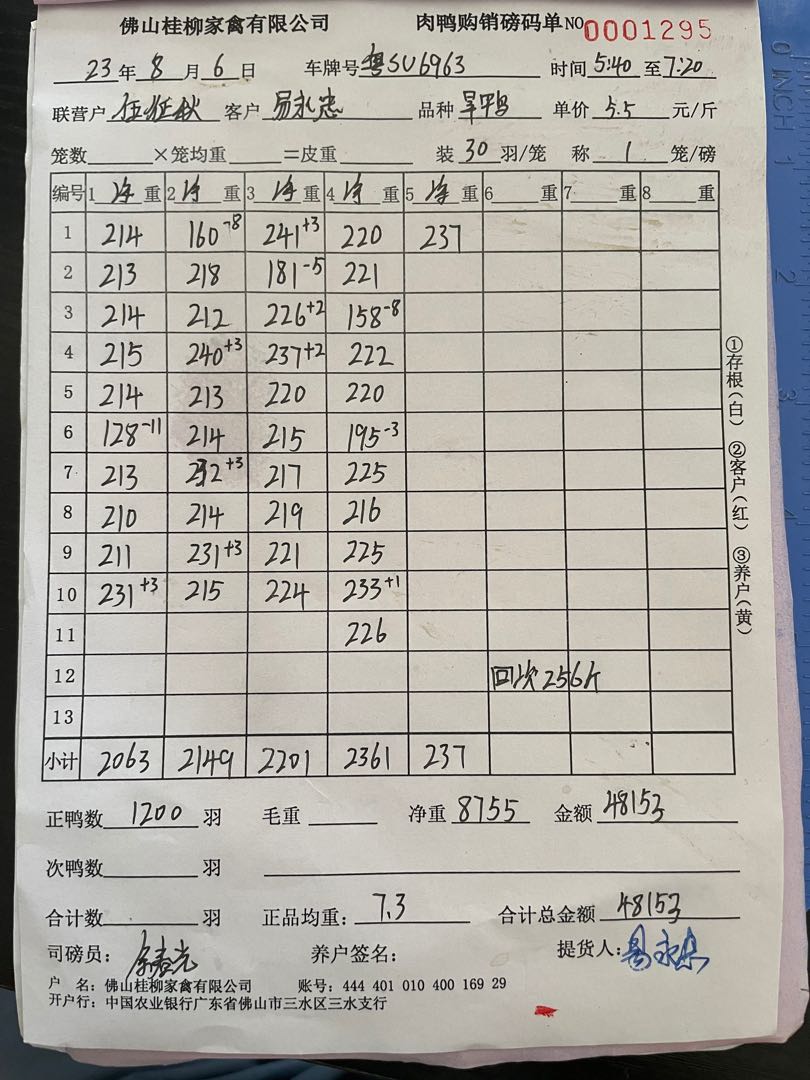 佛山桂柳家禽有限公司 肉鸭购销磅码单 NO 0001295
23年8月6日 车牌号 粤SU6963 时间 5:40 至 7:20
联营户 客户 易永忠 品种 旱鸭 单价 5.5 元/斤
笼数 ×笼均重 =皮重 装 30 羽/笼 称 1 笼/磅
编号 1 净 重 2 净 重 3 净 重 4 净 重 5 净 重 6 重 7 重 8 重
1 214 160-8 241+3 220 237
2 213 218 181-5 221
3 214 212 226+2 158-8
4 215 240+3 237+2 222
5 214 213 220 220
6 128-11 214 215 195-3
7 213 232+3 217 225
8 210 214 219 216
9 211 231+3 221 225
10 231+3 215 224 233+1
11 226
12 回次256斤
13
小计 2063 2149 2201 2361 237
正鸭数 1200 羽 毛重 净重 8755 金额 48153
次鸭数 羽
合计数 羽 正品均重: 7.3 合计总金额 48153
司磅员: 养户签名: 提货人: 易永忠
户 名: 佛山桂柳家禽有限公司 账号: 444 401 010 400 169 29
开户行: 中国农业银行广东省佛山市三水区三水支行
①存根(白) ②客户(红) ③养户(黄)
0 INCH 1
2
3
4